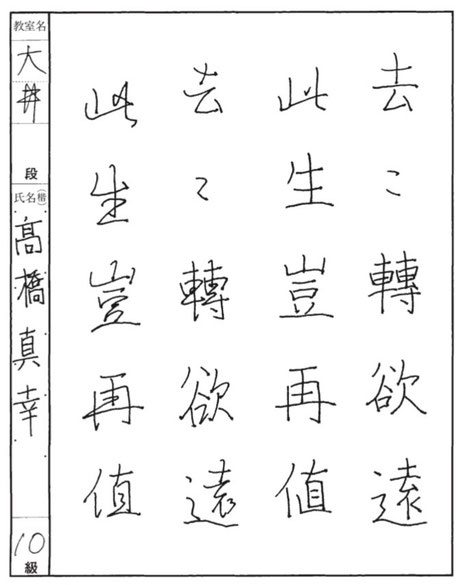 去々轉欲遠
此生豈再値
去々轉欲遠
此生豈再値
教室名
大井
段
氏名(楷)
髙橋真幸
10
級